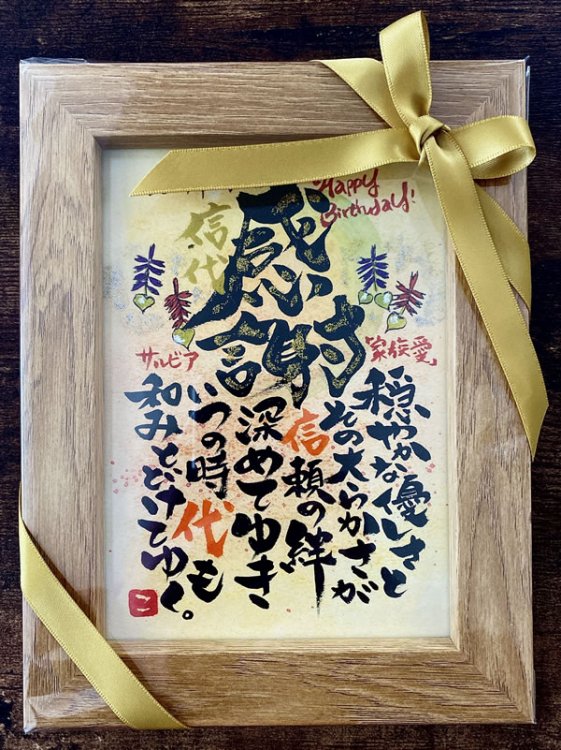 Happy
Birthday!
信代
感謝
サルビア
家族愛
穏やかな優しさと
その大らかさが
信頼の絆
深めてゆき
いつの時代も
和みとどけてゆく。
こ